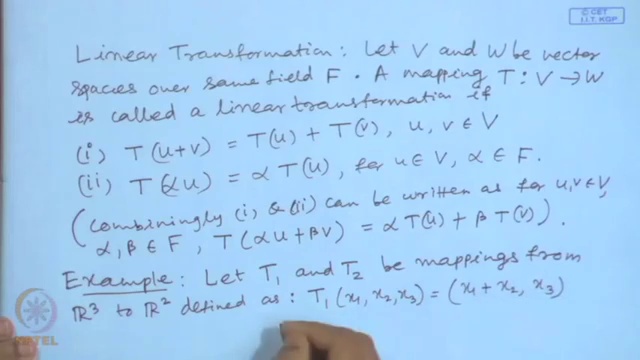 © CET
I.I.T. KGP
Linear Transformation: Let V and W be vector
spaces over same field F. A mapping T: V → W
is called a linear transformation if
(i) T(u+v) = T(u) + T(v), u, v ∈ V
(ii) T(αu) = α T(u), for u ∈ V, α ∈ F.
(Combiningly (i) & (ii) can be written as for u, v ∈ V,
α, β ∈ F, T(αu + βv) = α T(u) + β T(v)).
Example: Let T₁ and T₂ be mappings from
ℝ³ to ℝ² defined as: T₁(x₁, x₂, x₃) = (x₁ + x₂, x₃)